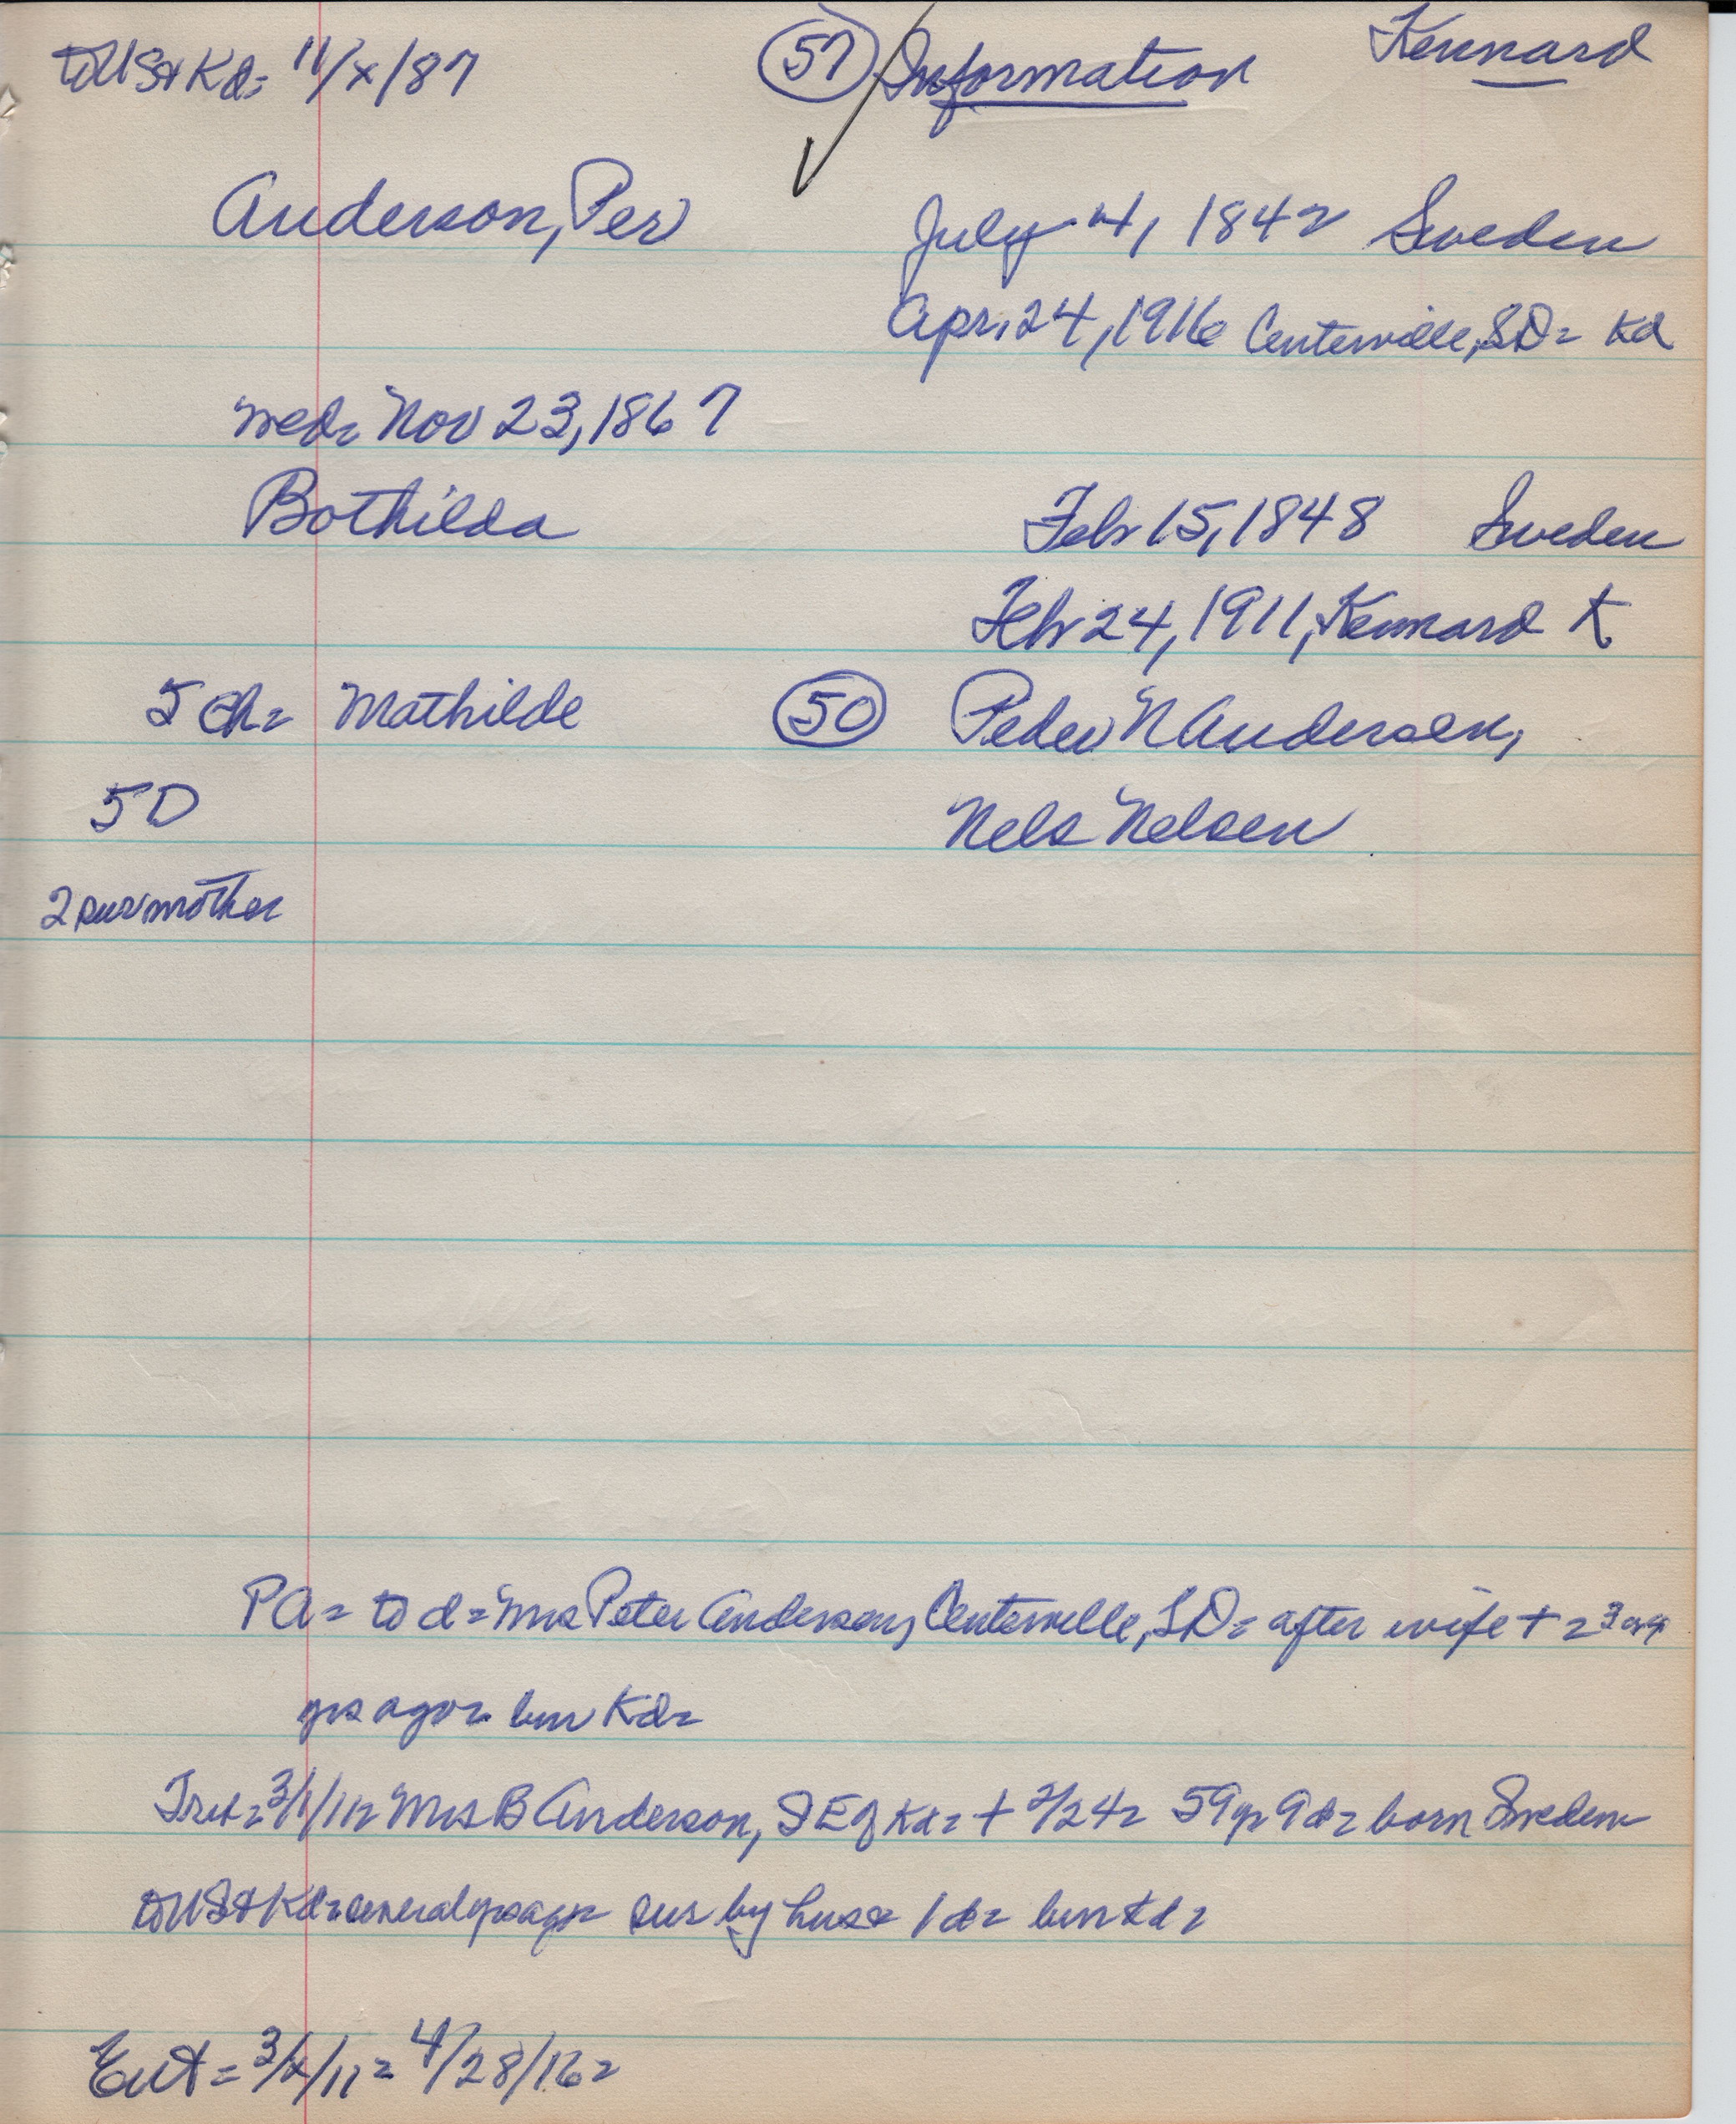 to US & Kd= 11/x/87 (57) Information Kennard
Anderson, Per July 4, 1842 Sweden
Apr. 24, 1916 Centerville, SD= Kd
wed= Nov 23, 1867
Bothilda Feb 15, 1848 Sweden
Feb 24, 1911, Kennard K
5 ch= Mathilde (50) Peder N Andersen,
5D Nels Nelsen
2 sur mother
PA= to d= Mrs Peter Anderson, Centerville, SD= after wife + = 3 or 4
yrs ago= bur Kd=
Trib= 3/1/11= Mrs B Anderson, SE of Kd= + 2/24= 59y 9d= born Sweden
to US & Kd= several yrs ago= sur by hus & 1 d= bur Kd=
Ent= 3/x/11= 4/28/16=